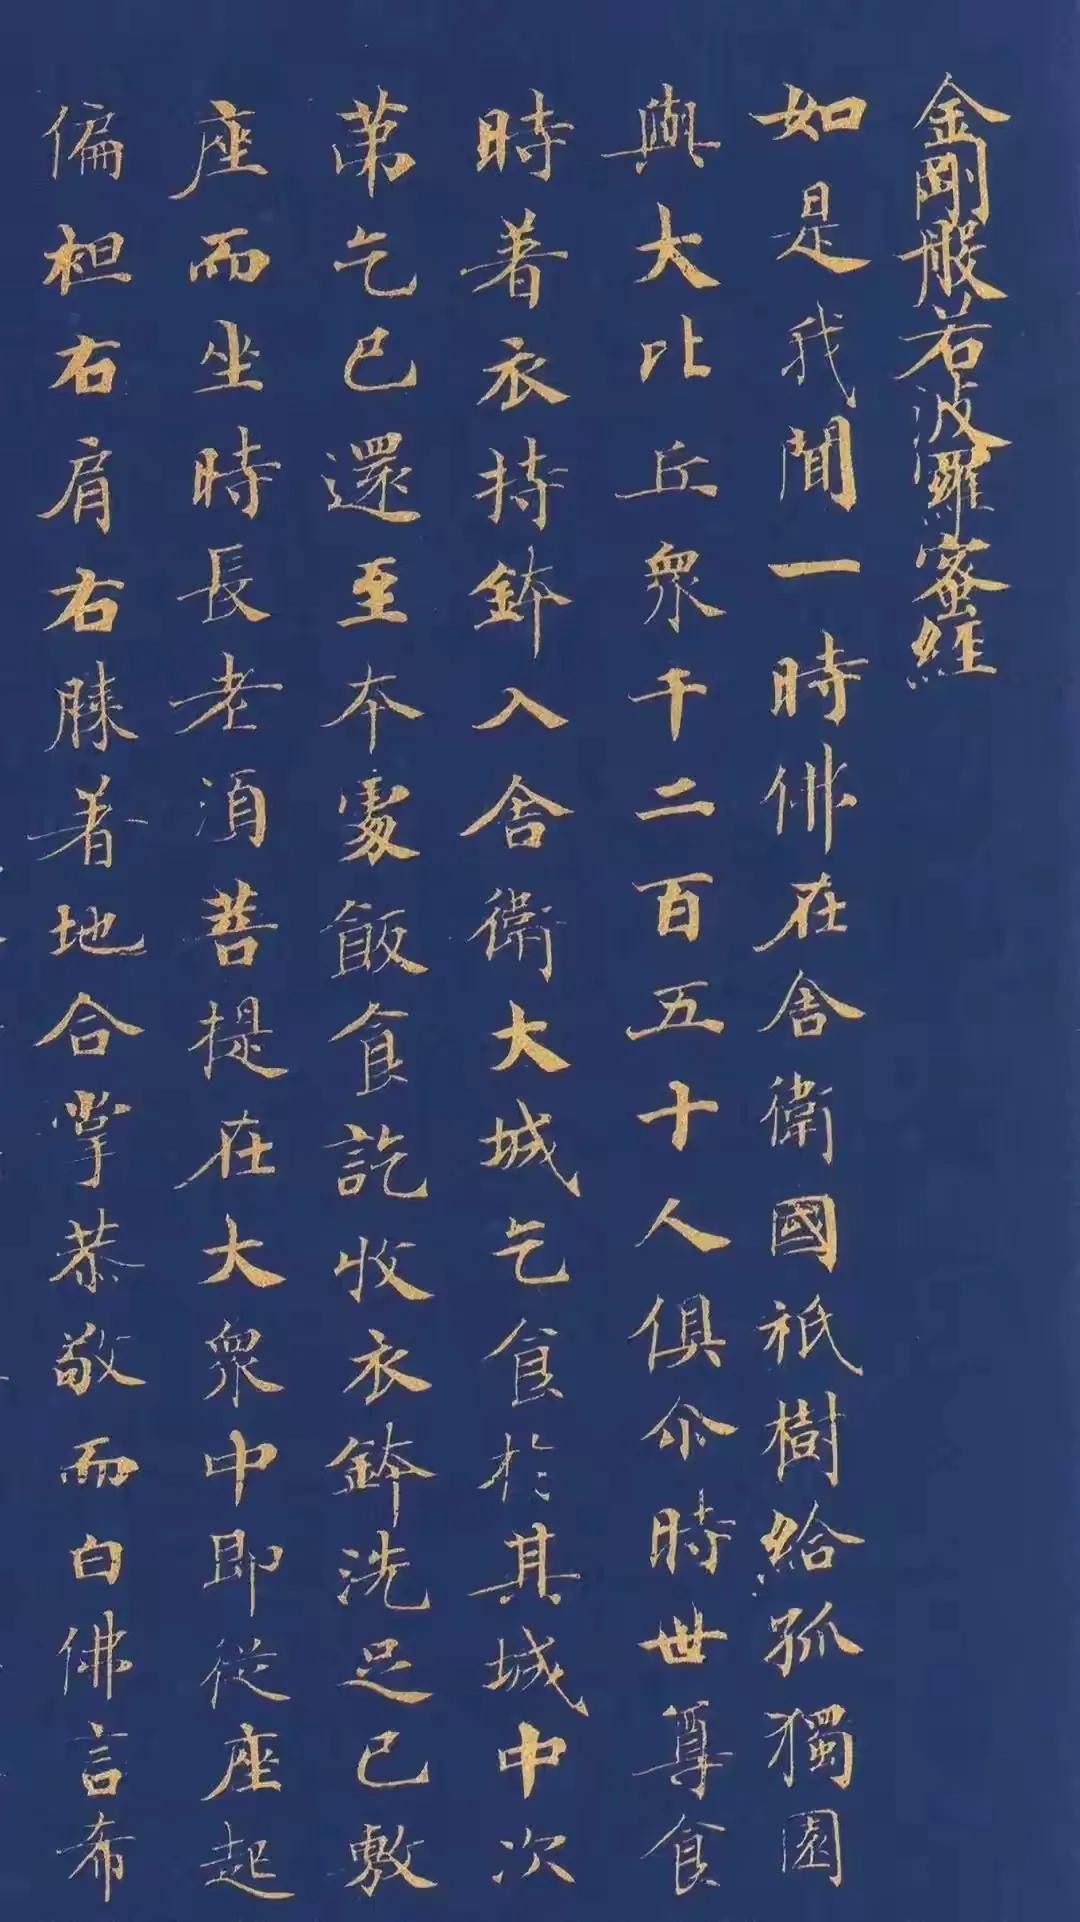 金剛般若波羅蜜經
如是我聞一時佛在舍衛國祇樹給孤獨園
與大比丘衆千二百五十人俱尒時世尊食
時著衣持鉢入舍衛大城乞食於其城中次
第乞已還至本處飯食訖收衣鉢洗足已敷
座而坐時長老須菩提在大衆中即從座起
偏袒右肩右膝著地合掌恭敬而白佛言希